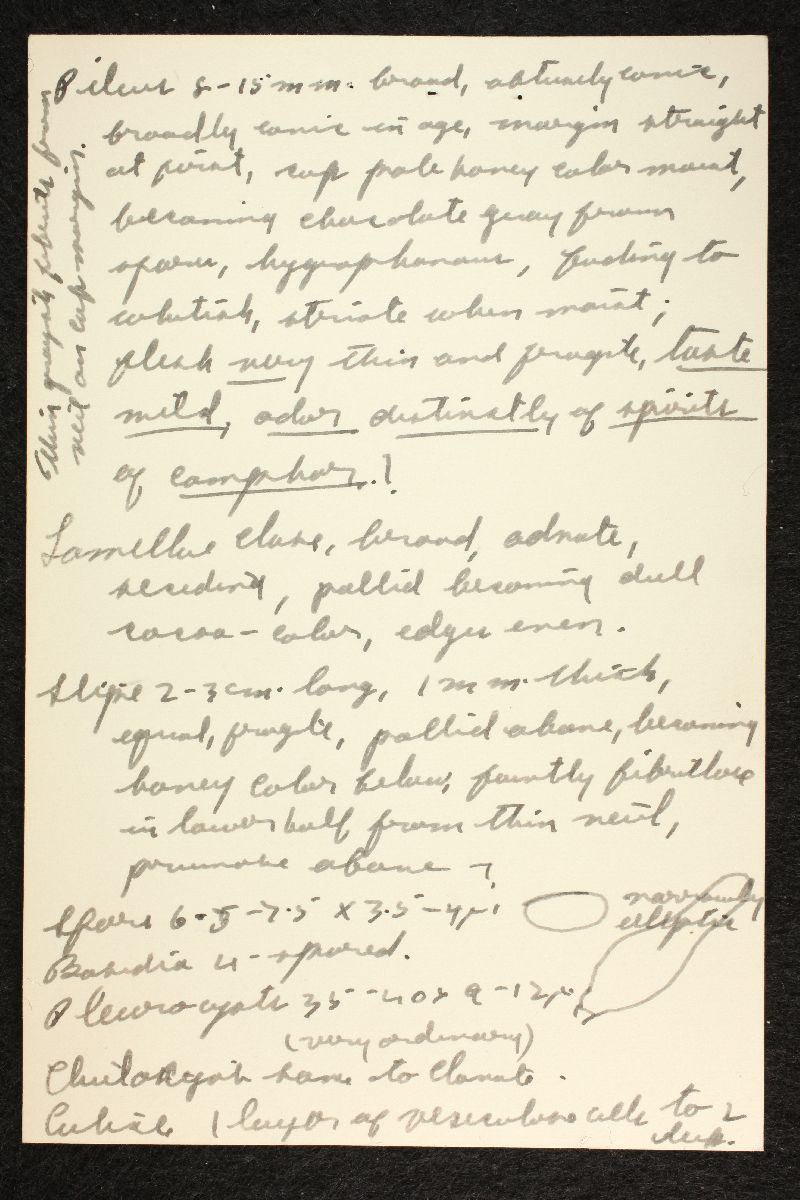 Pileus 8-15 mm. broad, obtusely conic,
broadly conic in age, margin straight
at first, cap pale honey color moist,
becoming chocolate gray from
spores, hygrophanous, fading to
whitish, striate when moist;
flesh very thin and fragile, taste
mild, odor distinctly of spirits
of camphor.!
Thin grayish fibrils from
veil on cap margin.
Lamellae close, broad, adnate,
seceding, pallid becoming dull
cocoa-color, edges even.
Stipe 2-3 cm. long, 1 mm. thick,
equal, fragile, pallid above, becoming
honey color below, faintly fibrillose
in lower half from thin veil,
pruinose above
Spores 6.5-7.5 x 3.5-4µ
narrowly
elliptic
Basidia 4-spored.
Pleurocysts 35-40 x 9-12µ
(very ordinary)
Cheilocysts same to clavate.
Cuticle 1 layer of vesiculose cells to 2
deep.